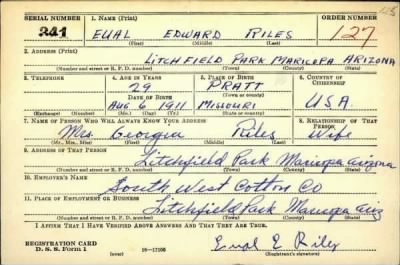 SERIAL NUMBER 1. NAME (Print) ORDER NUMBER
241 EUAL EDWARD RILES 127
(First) (Middle) (Last)
2. ADDRESS (Print)
LITCHFIELD PARK MARICOPA ARIZONA
(Number and street or R. F. D. number) (Town) (County) (State)
3. TELEPHONE 4. AGE IN YEARS 5. PLACE OF BIRTH 6. COUNTRY OF CITIZENSHIP
29 PRATT
DATE OF BIRTH (Town or county)
AUG 6 1911 MISSOURI U.S.A.
(Exchange) (Number) (Mo.) (Day) (Yr.) (State or country)
7. NAME OF PERSON WHO WILL ALWAYS KNOW YOUR ADDRESS 8. RELATIONSHIP OF THAT PERSON
Mrs. Georgia Riles Wife
(Mr., Mrs., Miss) (First) (Middle) (Last)
9. ADDRESS OF THAT PERSON
Litchfield Park Maricopa Arizona
(Number and street or R. F. D. number) (Town) (County) (State)
10. EMPLOYER'S NAME
South West Cotton Co
11. PLACE OF EMPLOYMENT OR BUSINESS
Litchfield Park Maricopa Ariz
(Number and street or R. F. D. number) (Town) (County) (State)
I AFFIRM THAT I HAVE VERIFIED ABOVE ANSWERS AND THAT THEY ARE TRUE.
REGISTRATION CARD
D. S. S. Form 1 (over) Eual E Riles
(Registrant's signature)